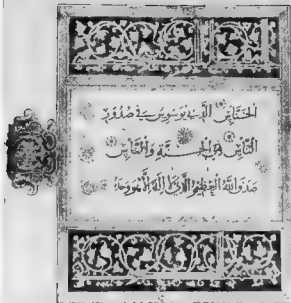 الخناس الذي يوسوس في صدور
الناس من الجنة والناس
صدق الله العظيم الذي لا إله إلا هو